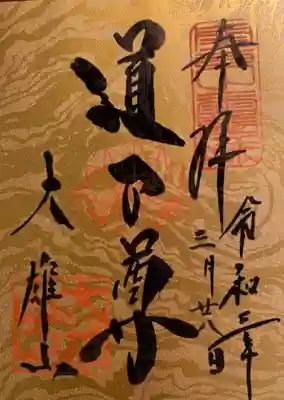 奉拝
令和三年
三月廿八日
道了尊
大雄山